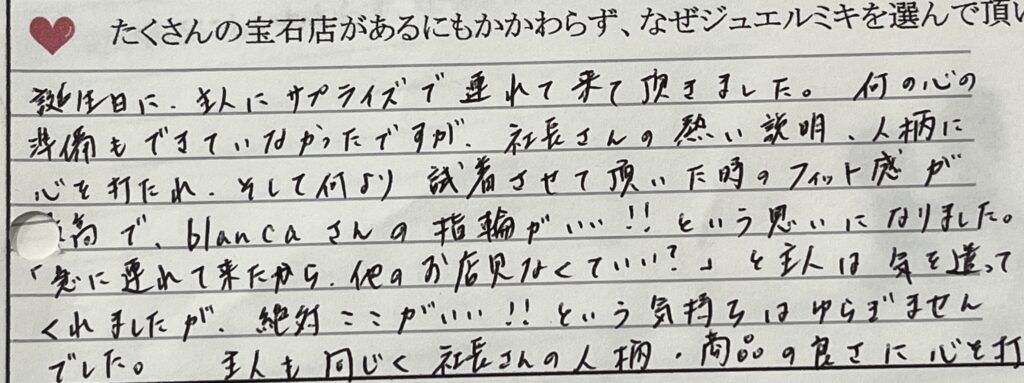 たくさんの宝石店があるにもかかわらず、なぜジュエルミキを選んで頂い
誕生日に、主人にサプライズで連れて来て頂きました。 何の心の
準備もできていなかったですが、社長さんの熱い説明、人柄に
心を打たれ、そして何より試着させて頂いた時のフィット感が
高で、blancaさんの指輪がいい!!という思いになりました。
「急に連れて来たから、他のお店見なくていい?」と主人は気を遣って
くれましたが、絶対ここがいい!!という気持ちはゆらぎません
でした。 主人も同じく社長さんの人柄・商品の良さに心を打